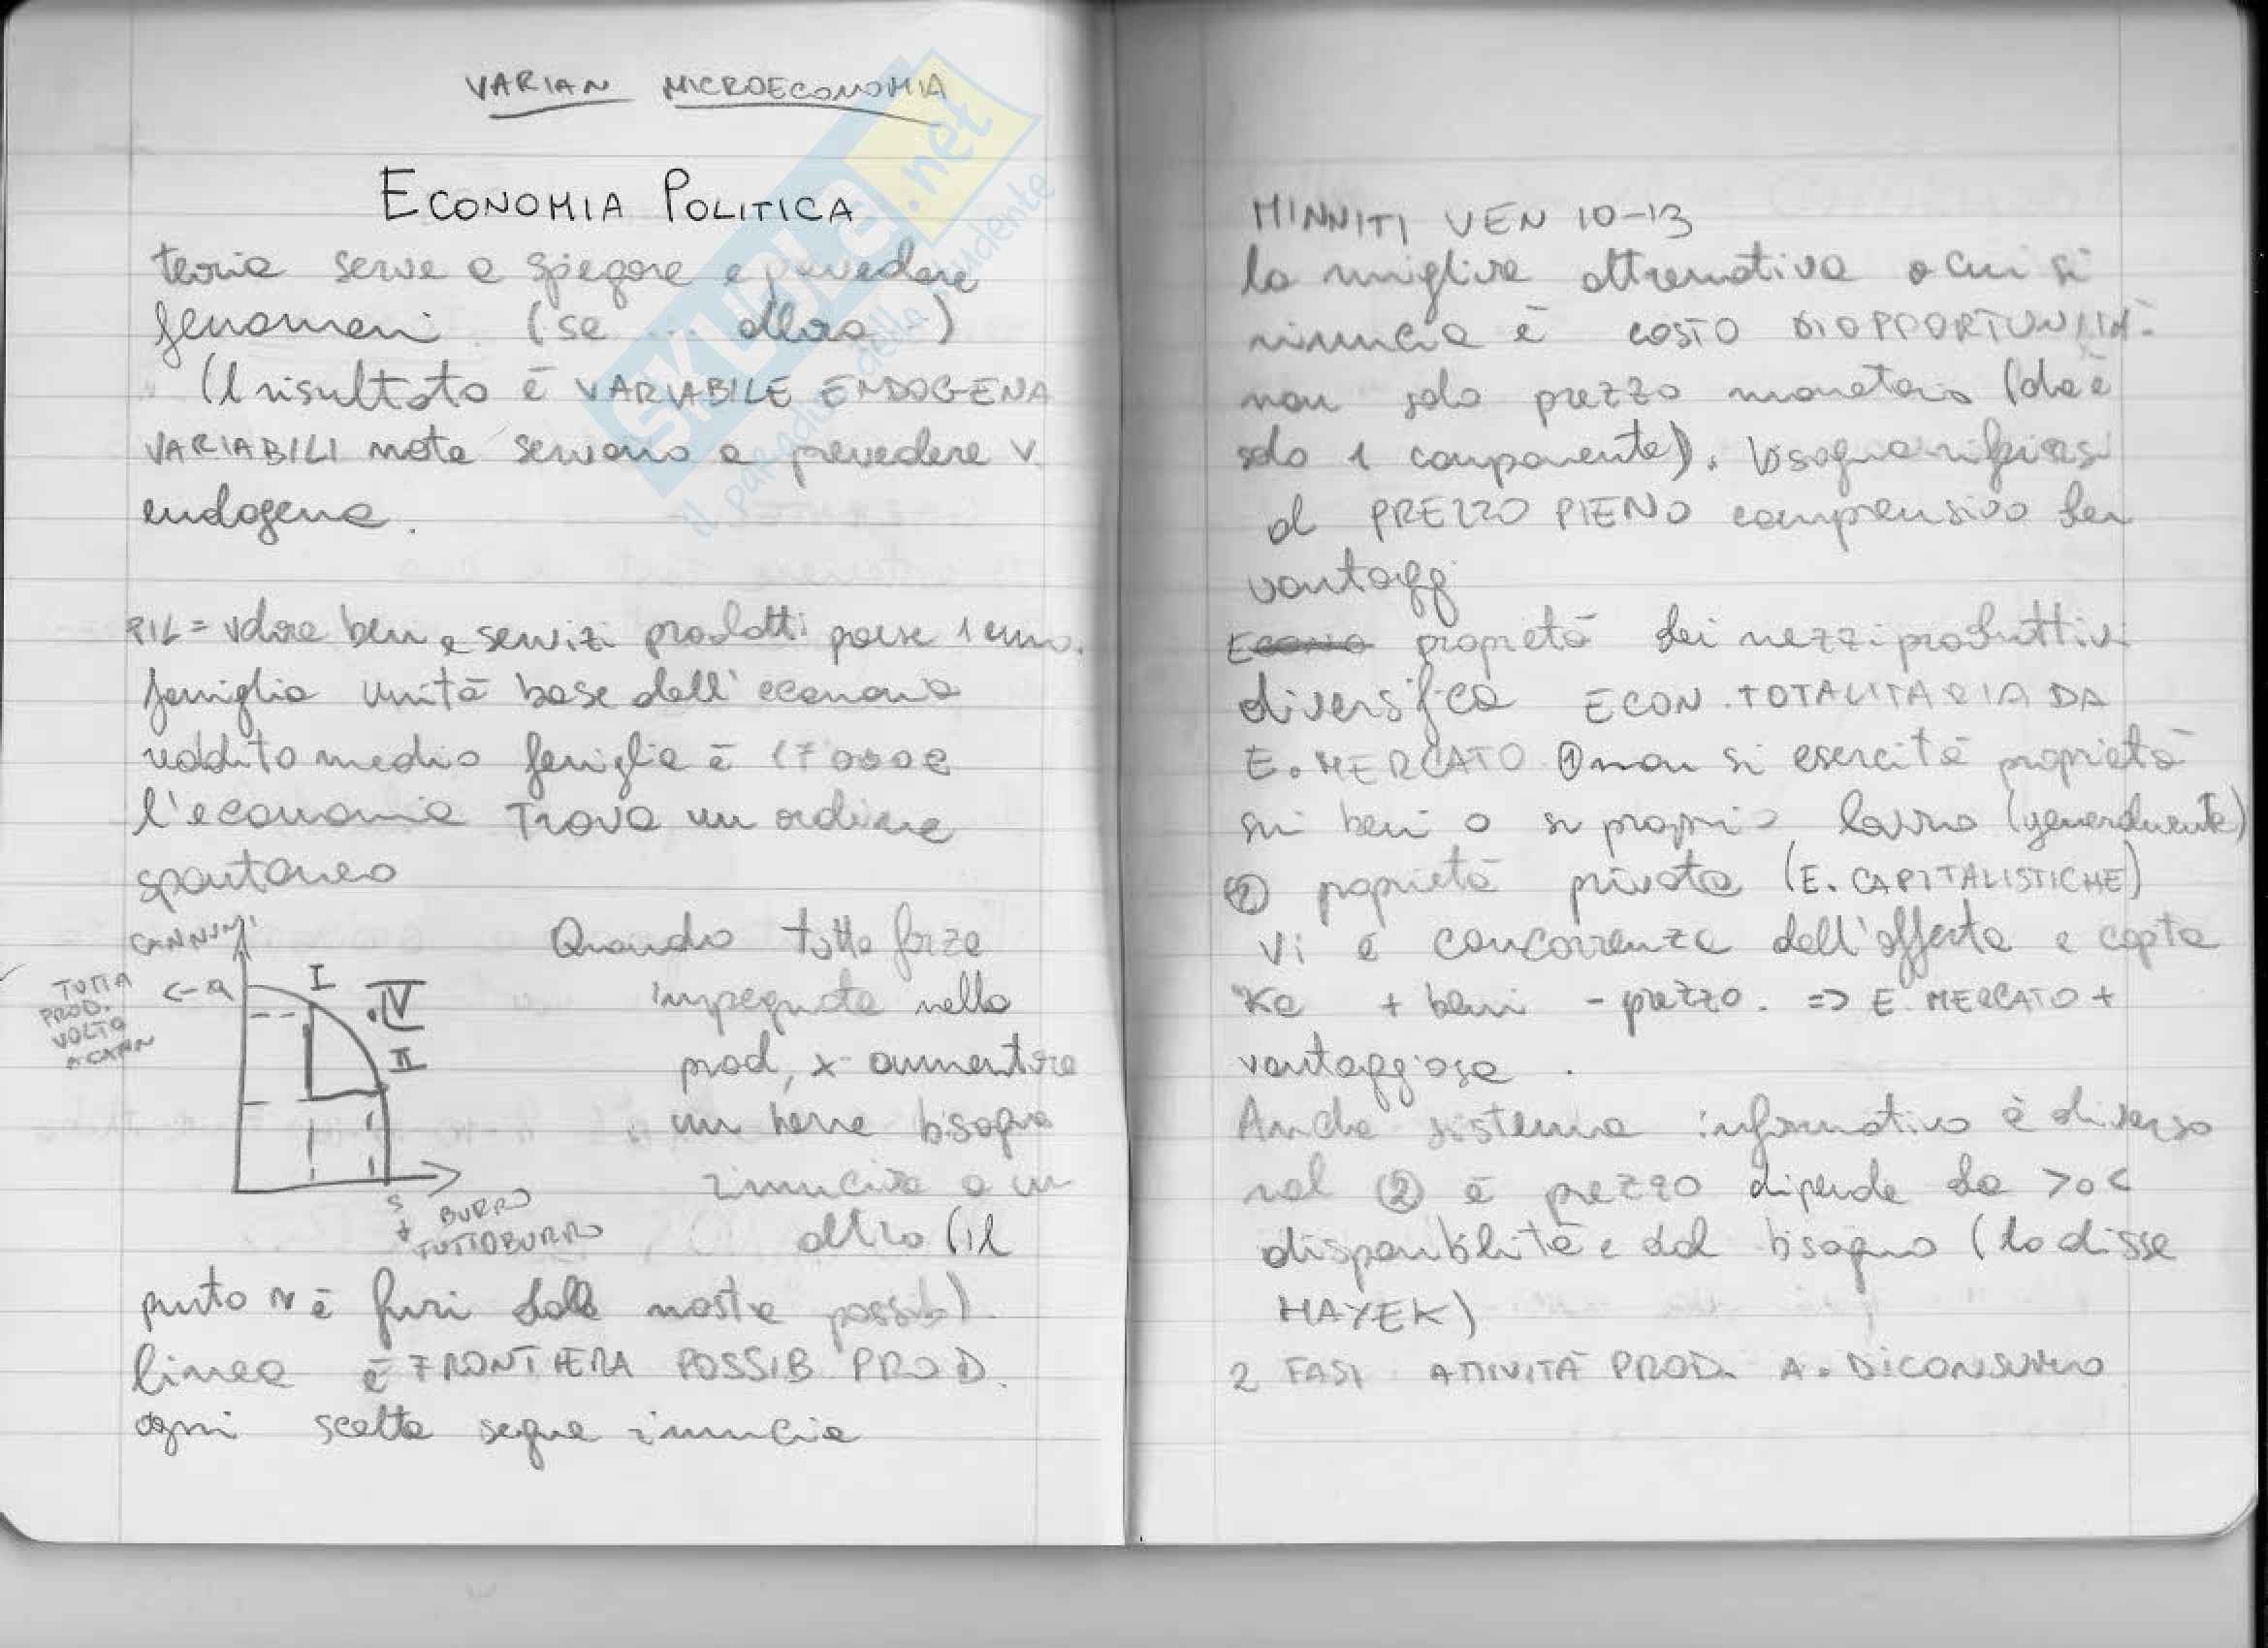 VARIAN MICROECONOMIA
ECONOMIA POLITICA
teoria serve a spiegare e prevedere
fenomeni (se ... allora )
(Il risultato è VARIABILE ENDOGENA
VARIABILI note servono a prevedere v.
endogena.
PIL = valore beni e servizi prodotti paese 1 anno.
famiglia unità base dell'economia
reddito medio famiglia è 17000€
l'economia trova un ordine
spontaneo
CANNONI
TUTTA
PROD.
VOLTO
A CANN
<- a
I
.IV
II
s
BURRO
TUTTOBURRO
Quando tutte forze
impegnate nella
prod, x aumentare
un bene bisogna
rinunciare a un
altro (il
punto è fuori dalle nostre possib)
linea è FRONTIERA POSSIB PROD.
ogni scelta segue rinuncia
MINNITI VEN 10-13
la migliore alternativa a cui si
rinuncia è COSTO DI OPPORTUNITÀ.
non solo prezzo monetario (che è
solo 1 componente). bisogna rifarsi
al PREZZO PIENO comprensivo
vantaggi
proprietà dei mezzi produttivi
diversifica ECON. TOTALITARIA DA
E. MERCATO ① non si esercita proprietà
sui beni o su proprio lavoro (generalmente)
② proprietà privata (E. CAPITALISTICHE)
Vi è concorrenza dell'offerta e capita
Ke + beni - prezzo. => E. MERCATO +
vantaggiosa .
Anche sistema informativo è diverso
nel ② è prezzo dipende da > o <
disponibilità e dal bisogno (lo disse
HAYEK)
2 FASI ATTIVITÀ PROD. A. DI CONSUMO
SKUOLA.net
il paradiso dello studente